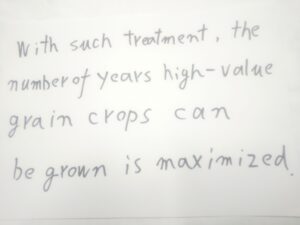 With such treatment, the
number of years high-value
grain crops can
be grown is maximized.